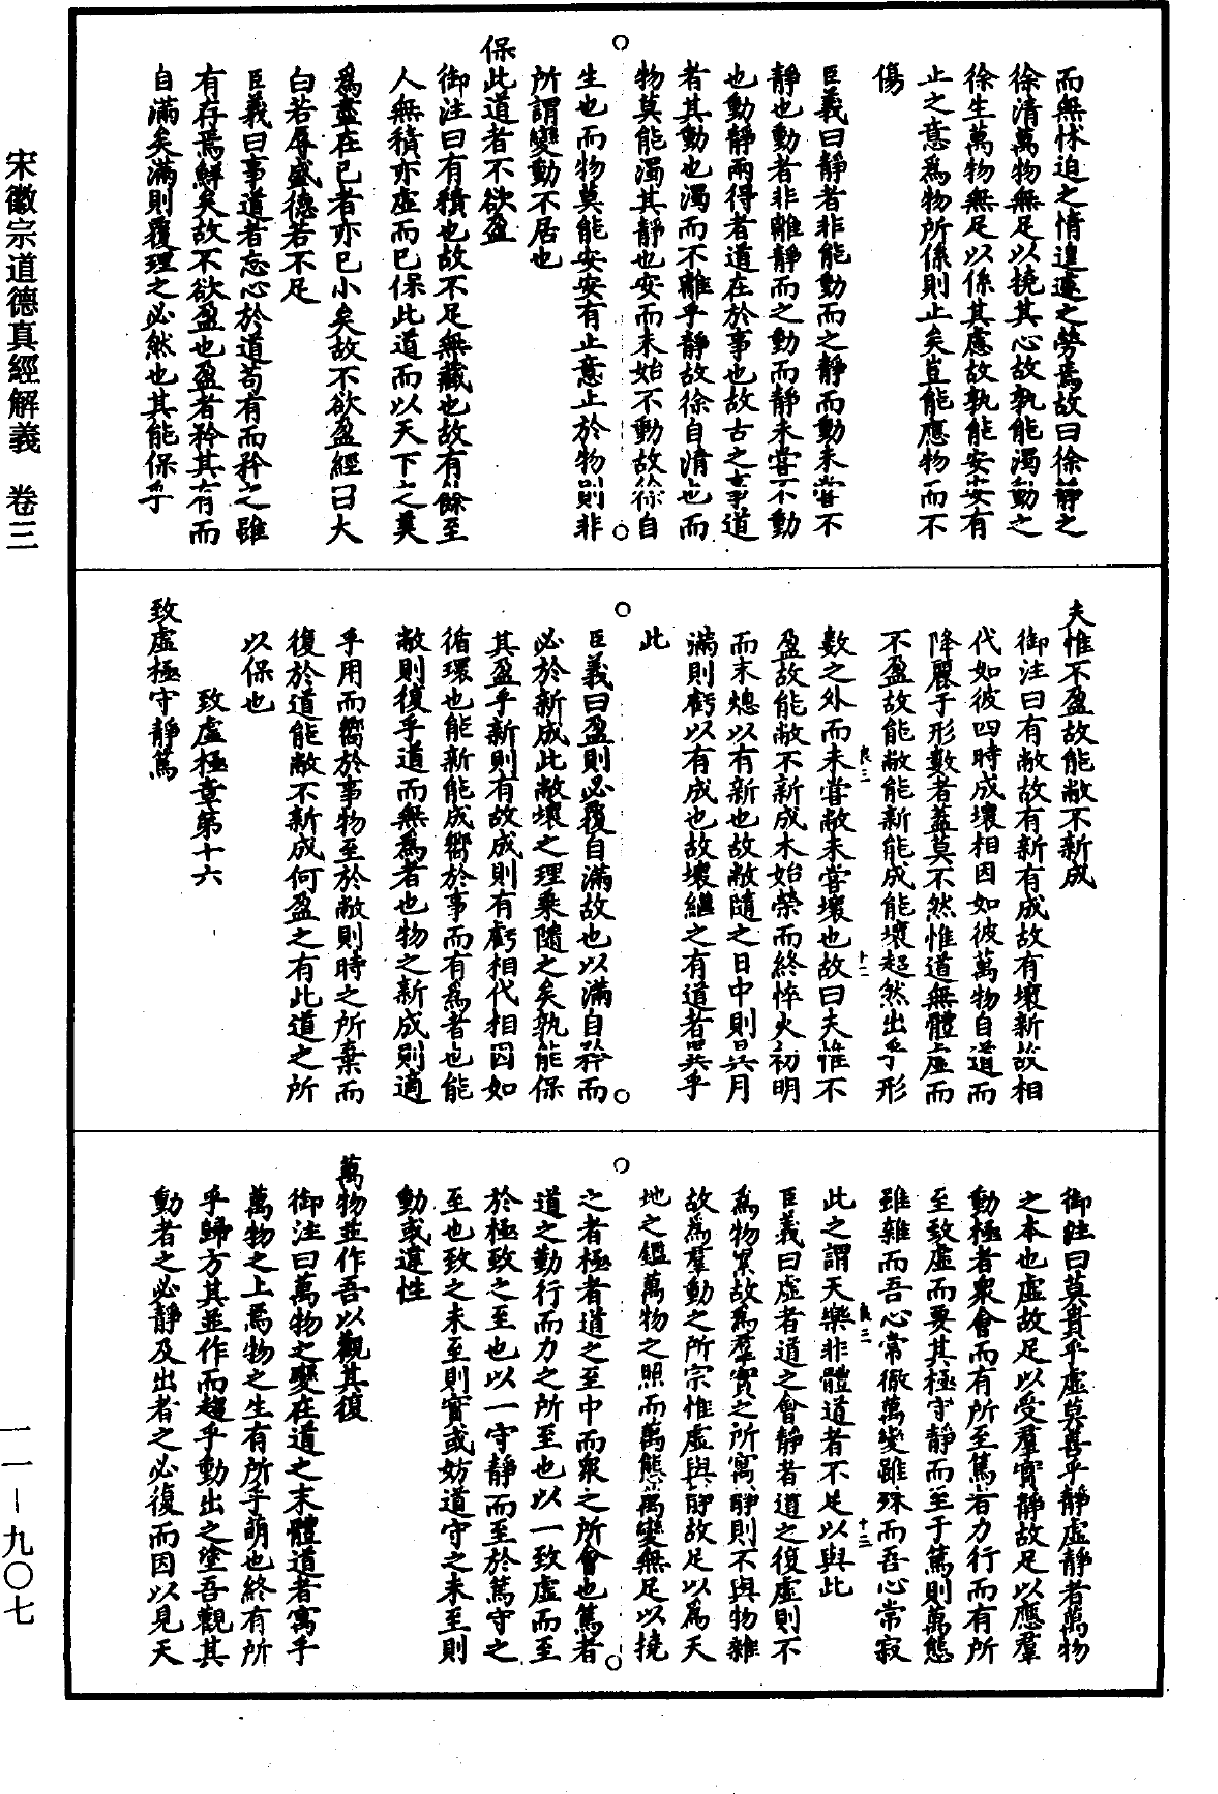 而無怵迫之情遑遽之勞焉故曰徐靜之
徐清萬物無足以撓其心故孰能濁動之
徐生萬物無足以係其慮故孰能安安有
止之意為物所係則止矣豈能應物而不
傷
臣義曰靜者非能動而之靜而動未嘗不
靜也動者非離靜而之動而靜未嘗不動
也動靜兩得者道在於事也故古之事道
者其動也濁而不離乎靜故徐自清也而
物莫能濁其靜也安而未始不動故徐自
生也而物莫能安安有止意止於物則非
所謂變動不居也
保此道者不欲盈
御注曰有積也故不足無藏也故有餘至
人無積亦虛而已保此道而以天下之美
為盡在已者亦已小矣故不欲盈經曰大
白若辱盛德若不足
臣義曰事道者忘心於道苟有而矜之雖
有存焉鮮矣故不欲盈也盈者矜其有而
自滿矣滿則覆理之必然也其能保乎
夫惟不盈故能敝不新成
御注曰有敝故有新有成故有壞新故相
代如彼四時成壞相因如彼萬物自道而
降麗于形數者蓋莫不然惟道無體虛而
不盈故能敝能新能成能壞超然出乎形
數之外而未嘗敝未嘗壞也故曰夫惟不
盈故能敝不新成木始榮而終悴火初明
而末熄以有新也故敝隨之日中則昃月
滿則虧以有成也故壞繼之有道者異乎
此
臣義曰盈則必覆自滿故也以滿自矜而
必於新成此敝壞之理乘隨之矣孰能保
其盈乎新則有故成則有虧相代相因如
循環也能新能成嚮於事而有為者也能
敝則復乎道而無為者也物之新成則適
乎用而嚮於事物至於敝則時之所棄而
復於道能敝不新成何盈之有此道之所
以保也
致虛極章第十六
致虛極守靜篤
御註曰莫貴乎虛莫善乎靜虛靜者萬物
之本也虛故足以受羣實靜故足以應羣
動極者衆會而有所至篤者力行而有所
至致虛而要其極守靜而至于篤則萬態
雖雜而吾心常徹萬變雖殊而吾心常寂
此之謂天樂非體道者不足以與此
臣義曰虛者道之會靜者道之復虛則不
為物累故為羣實之所寓靜則不與物雜
故為羣動之所宗惟虛與靜故足以為天
地之鑑萬物之照而萬態萬變無足以撓
之者極者道之至中而衆之所會也篤者
道之勤行而力之所至也以一致虛而至
於極致之至也以一守靜而至於篤守之
至也致之未至則實或妨道守之未至則
動或違性
萬物並作吾以觀其復
御注曰萬物之變在道之末體道者寓乎
萬物之上焉物之生有所乎萌也終有所
乎歸方其並作而趨乎動出之塗吾觀其
動者之必靜及出者之必復而因以見天
宋徽宗道德真經解義 卷三
一一—九〇七